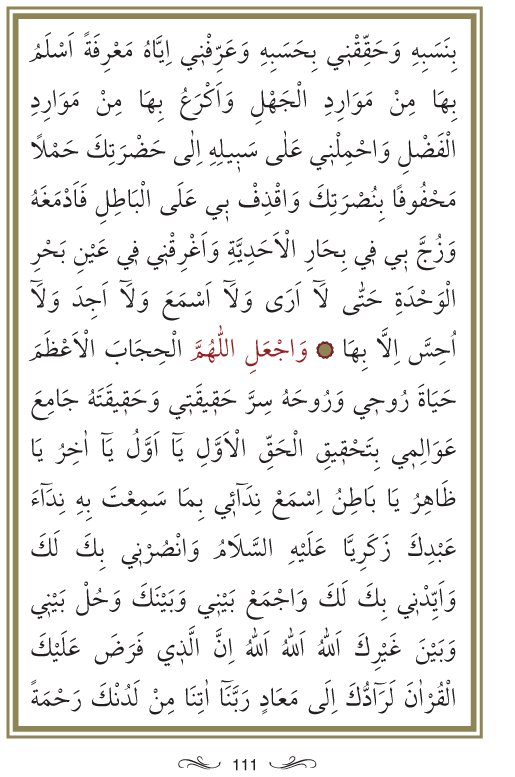 بِنَسَبِهِ وَحَقِّقْنِي بِحَسَبِهِ وَعَرِّفْنِي اِيَّاهُ مَعْرِفَةً اَسْلَمُ
بِهَا مِنْ مَوَارِدِ الْجَهْلِ وَاَكْرَعُ بِهَا مِنْ مَوَارِدِ
الْفَضْلِ وَاحْمِلْنِي عَلٰى سَبِيلِهِ اِلٰى حَضْرَتِكَ حَمْلًا
مَحْفُوفًا بِنُصْرَتِكَ وَاقْذِفْ بِي عَلَى الْبَاطِلِ فَاَدْمَغَهُ
وَزُجَّ بِي فِي بِحَارِ الْاَحَدِيَّةِ وَاَغْرِقْنِي فِي عَيْنِ بَحْرِ
الْوَحْدَةِ حَتّٰى لَٓا اَرٰى وَلَٓا اَسْمَعَ وَلَٓا اَجِدَ وَلَٓا
اُحِسَّ اِلَّا بِهَا ۞ وَاجْعَلِ اللّٰهُمَّ الْحِجَابَ الْاَعْظَمَ
حَيَاةَ رُوحِي وَرُوحَهُ سِرَّ حَقِيقَتِي وَحَقِيقَتَهُ جَامِعَ
عَوَالِمِي بِتَحْقِيقِ الْحَقِّ الْاَوَّلِ يَٓا اَوَّلُ يَٓا اٰخِرُ يَا
ظَاهِرُ يَا بَاطِنُ اِسْمَعْ نِدَٓائِي بِمَا سَمِعْتَ بِهِ نِدَٓاءَ
عَبْدِكَ زَكَرِيَّا عَلَيْهِ السَّلَامُ وَانْصُرْنِي بِكَ لَكَ
وَاَيِّدْنِي بِكَ لَكَ وَاجْمَعْ بَيْنِي وَبَيْنَكَ وَحُلْ بَيْنِي
وَبَيْنَ غَيْرِكَ اَللّٰهُ اَللّٰهُ اَللّٰهُ اِنَّ الَّذِي فَرَضَ عَلَيْكَ
الْقُرْاٰنَ لَرَٓادُّكَ اِلَى مَعَادٍ رَبَّنَٓا اٰتِنَا مِنْ لَدُنْكَ رَحْمَةً
111